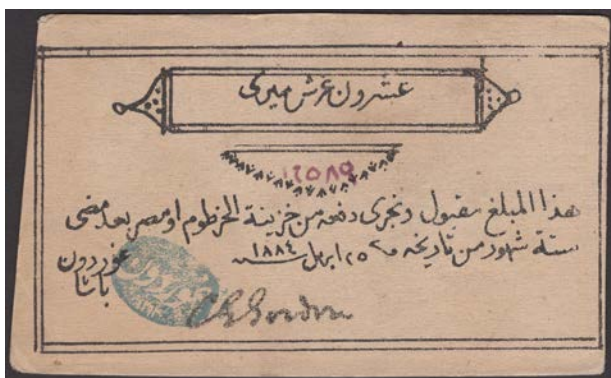 عشرون غرش ميرى
١٢٥٨٩
هذا المبلغ مقبول ونجرى دفعه من خزينة الخرطوم او مصر بعد مضى
ستة شهور من تاريخه ٢٥ ابريل سنة ١٨٨٤
غوردون
باشا
C G Gordon